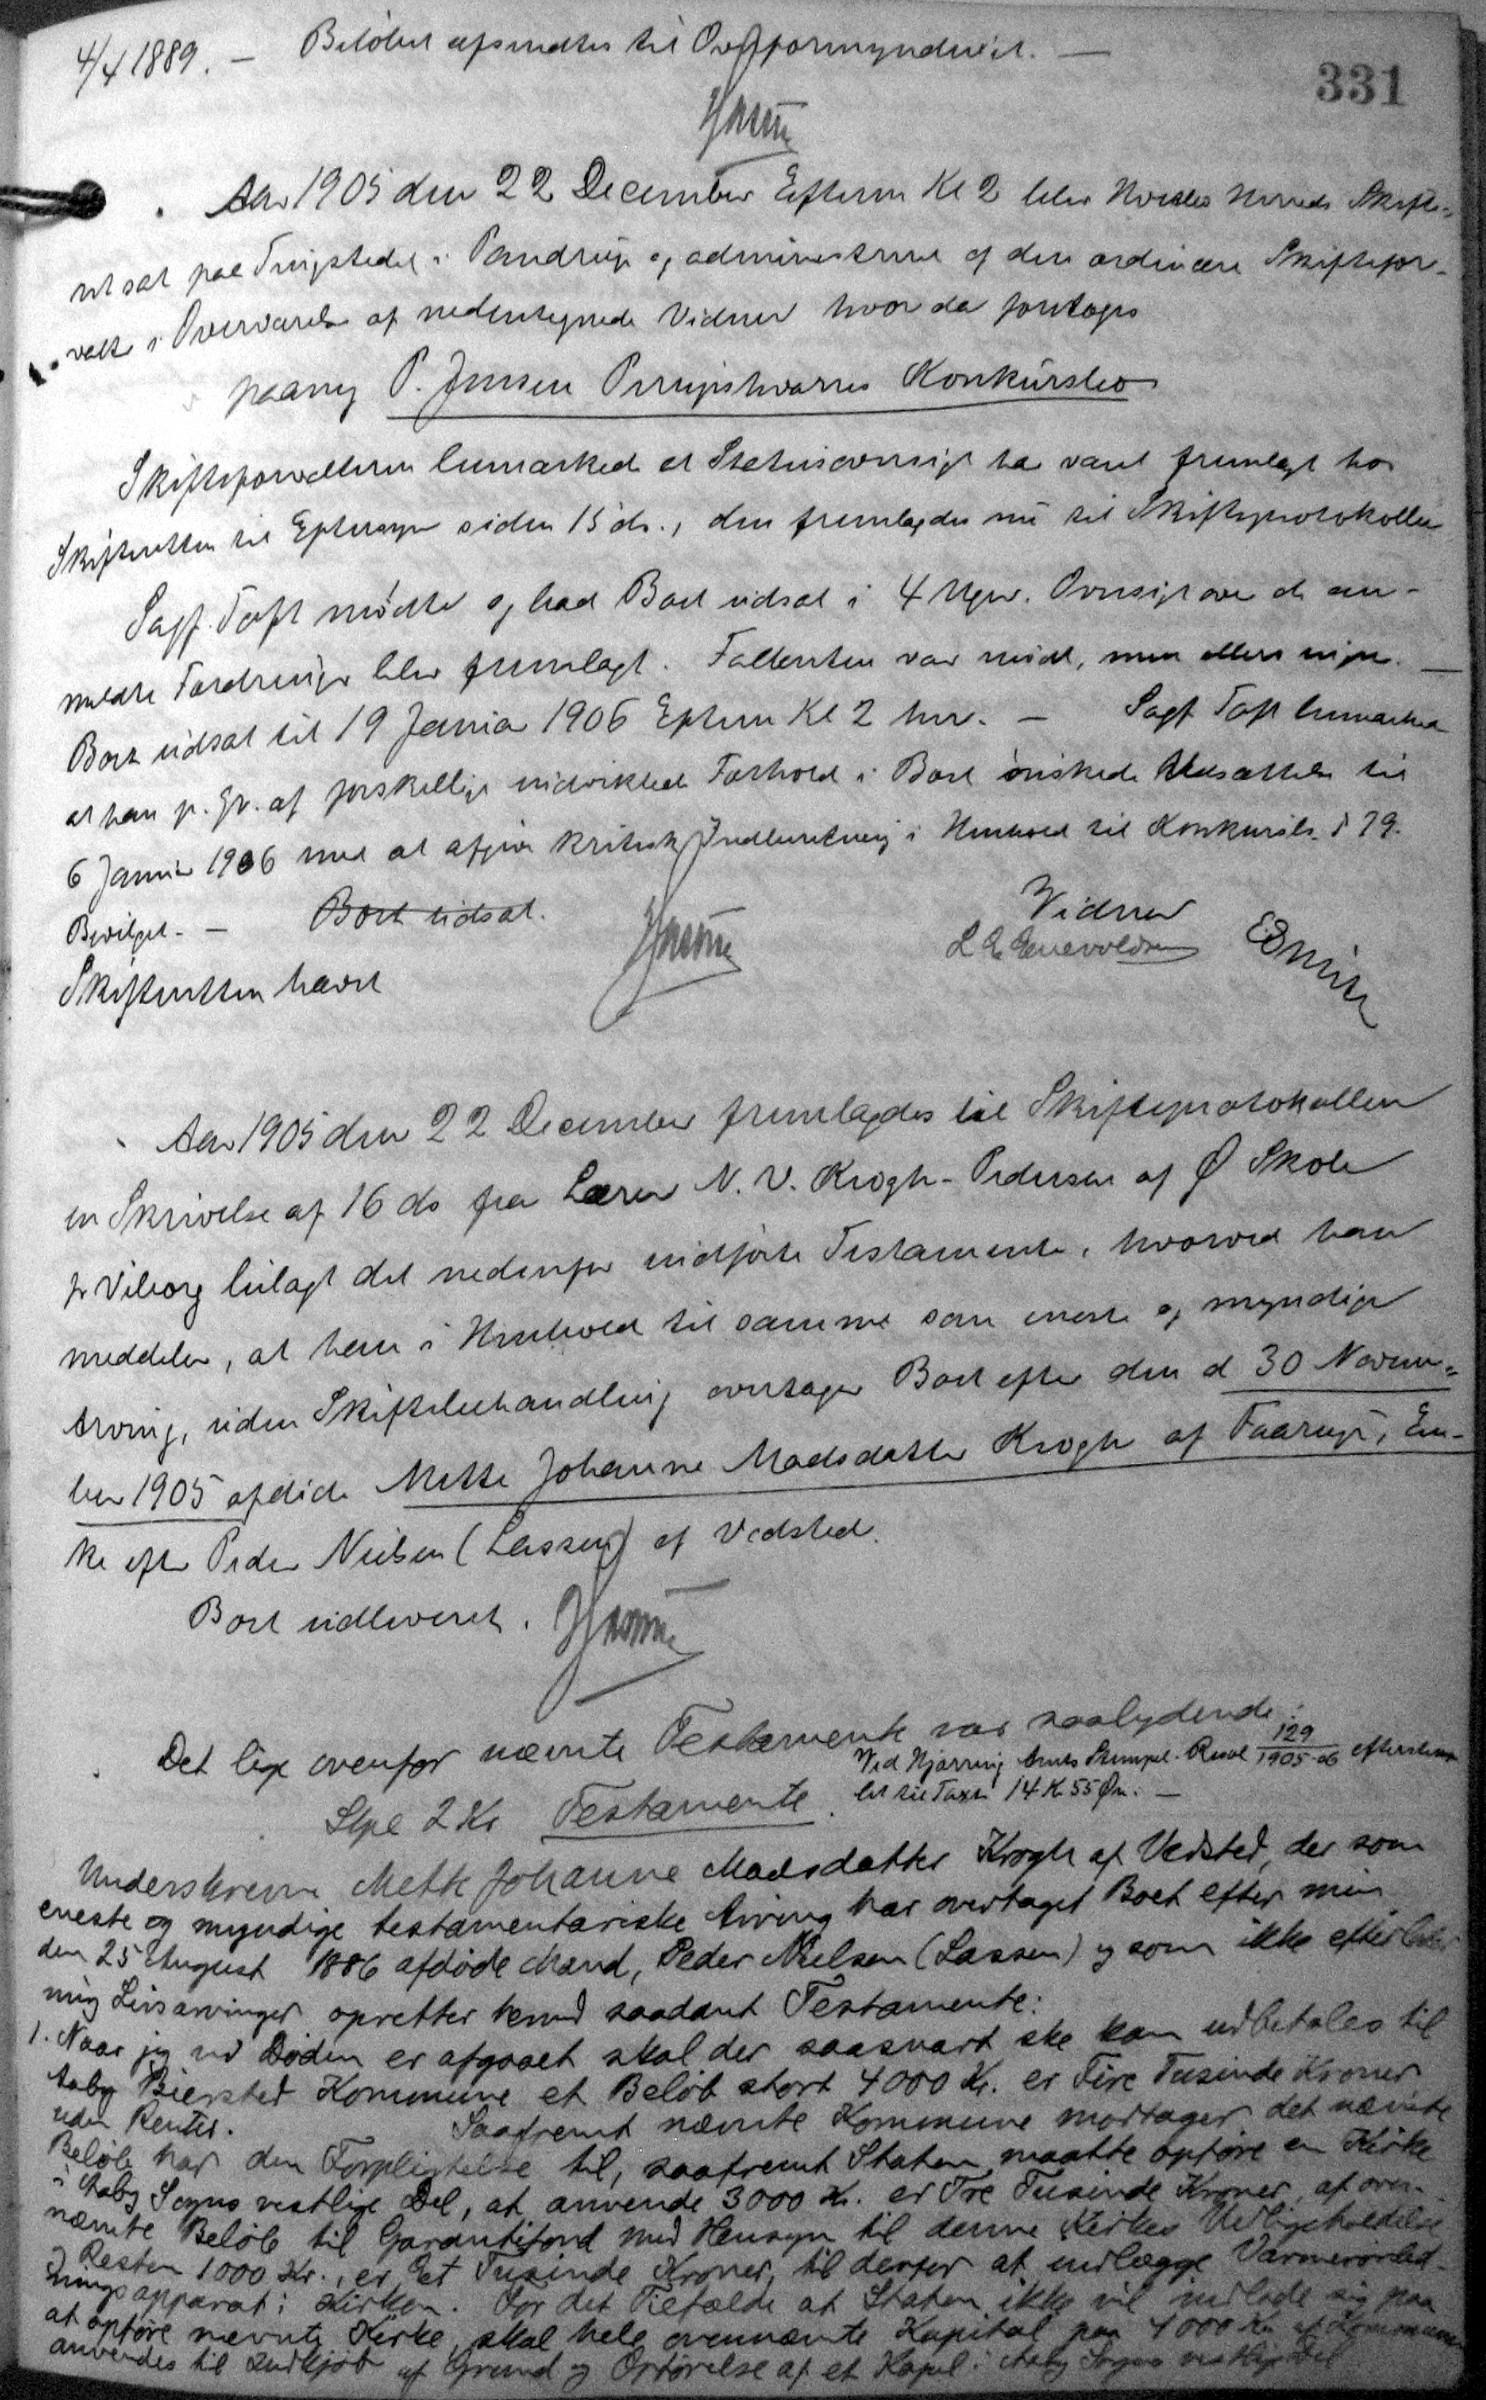 4/4 1889. – Beløbet afsendtes til Overformynderiet. –
331
Aar 1905 den 22 December Efterm Kl 2 blev Hvetbo Herreds Skifte-
ret sat paa Tingstedet i Pandrup og administreret af den ordinære Skiftefor-
valter i Overværelse af nedentegnede Vidner hvor da foretoges
paany P. Jensen Pirupshvarres Konkursbo
Skifteforvalteren bemærkede at Statusoversigt har været fremlagt hos
Skifteretten til Eftersyn siden 15 ds., den fremlagdes nu til Skifteprotokollen
Sagf. Toft mødte og bad Boet udsat i 4 Uger. Oversigt over de an-
meldte Fordringer blev fremlagt. Fallenten var mødt, men ellers ingen. –
Boet udsat til 19 Januar 1906 Efterm Kl 2 her. – Sagf Toft bemærkede
at han p. Gr. af forskellige indviklede Forhold i Boet ønskede Udsættelse til
6 Januar 1906 med at afgive kritisk Indberetning i Henhold til Konkursl. § 79.
Bevilget. – Boet udsat.
Skifteretten hævet
Vidner
L C Enevoldsen
Aar 1905 den 22 December fremlagdes til Skifteprotokollen
en Skrivelse af 16 ds fra Lærer N. V. Krogh-Pedersen af Ø Skole
pr Viborg bilagt det nedenfor indførte Testamente, hvorved han
meddeler, at han i Henhold til samme som eneste og myndige
Arving, uden Skiftebehandling overtager Boet efter den d 30 Novem-
ber 1905 afdøde Mette Johanne Madsdatter Krogh af Faarup, En-
ke efter Peder Nielsen (Lassen) af Vedsted.
Boet udleveret.
Det lige ovenfor nævnte Testamente var saalydende:
Ved Hjørring Amts Stempel-Revel 129/1905-06 efterstemp-
let til Taxt 14 K 55 Øre. –
Stpl 2 Kr Testamente.
Underskrevne Mette Johanne Madsdatter Krogh af Vedsted, der som
eneste og myndige testamentariske Arving har overtaget Boet efter min
den 25 August 1886 afdøde Mand, Peder Nielsen (Lassen) og som ikke efterlader
mig Livsarvinger opretter herved saadant Testamente:
1. Naar jeg ved Døden er afgaaet skal der saasnart ske kan udbetales til
Aaby Biersted Kommune et Beløb stort 4000 Kr. er Fire Tusinde Kroner
uden Renter. Saafremt nævnte Kommune modtager det nævnte
Beløb har den Forpligtelse til, saafremt Staten maatte opføre en Kirke
i Aaby Sogns vestlige Del, at anvende 3000 Kr. er Tre Tusinde Kroner af oven-
nævnte Beløb til Garantifond med Hensyn til denne Kirkes Vedligeholdelse
og Resten 1000 Kr., er Et Tusinde Kroner, til derfor at indlægge Varmerørled-
ningsapparat i Kirken. For det Tilfælde at Staten ikke vil indlade sig paa
at opføre nævnte Kirke, skal hele ovennævnte Kapital paa 4000 Kr. af Kommunen
anvendes til Indkjøb af Grund og Opførelse af et Kapel i Aaby Sogns vestlige Del